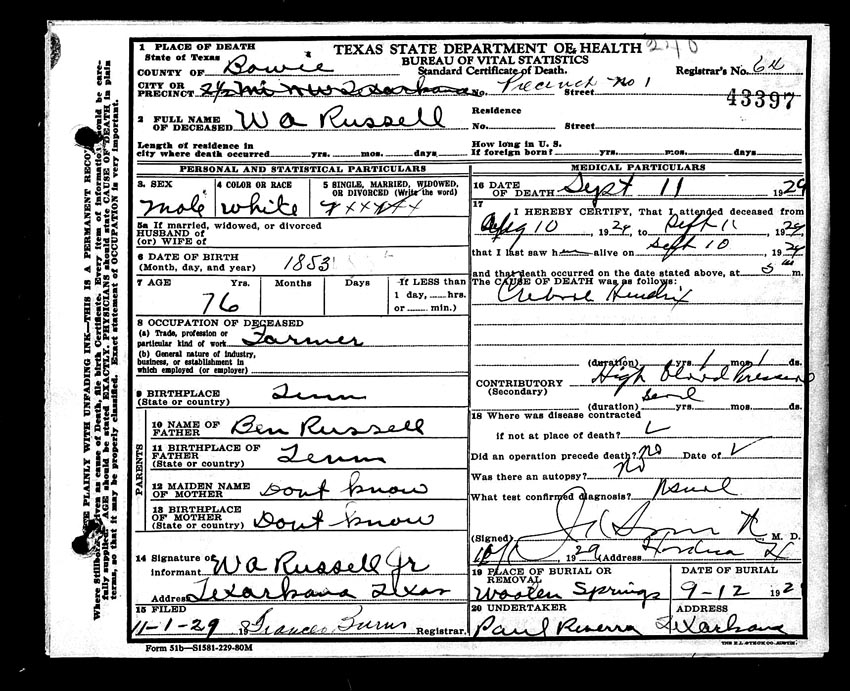 1 PLACE OF DEATH
State of Texas
COUNTY OF Bowie
TEXAS STATE DEPARTMENT OF HEALTH 240
BUREAU OF VITAL STATISTICS
Standard Certificate of Death.
Registrar's No. 64
CITY OR PRECINCT 2½ Mi NW Texarkana No. Precinct No 1 Street
43397
2 FULL NAME OF DECEASED W a Russell
Residence
No. Street
Length of residence in city where death occurred yrs. mos. days
How long in U. S. If foreign born? yrs. mos. days
PERSONAL AND STATISTICAL PARTICULARS
3. SEX male
4 COLOR OR RACE white
5 SINGLE, MARRIED, WIDOWED, OR DIVORCED (Write the word)
5a If married, widowed, or divorced
HUSBAND OF
(or) WIFE of
6 DATE OF BIRTH
(Month, day, and year) 1853
7 AGE Yrs. Months Days If LESS than
1 day, hrs.
76 or min.)
8 OCCUPATION OF DECEASED
(a) Trade, profession or
particular kind of work Farmer
(b) General nature of industry,
business, or establishment in
which employed (or employer)
9 BIRTHPLACE
(State or country) Tenn
PARENTS
10 NAME OF FATHER Ben Russell
11 BIRTHPLACE OF FATHER
(State or country) Tenn
12 MAIDEN NAME OF MOTHER Dont know
13 BIRTHPLACE OF MOTHER
(State or country) Dont know
14 Signature of informant W a Russell Jr
Address Texarkana Texas
15 FILED
11-1-29 19 Frances Burns Registrar.
MEDICAL PARTICULARS
16 DATE OF DEATH Sept 11 1929
17
I HEREBY CERTIFY, That I attended deceased from
Aug 10, 1929, to Sept 11, 1929,
that I last saw h alive on Sept 10, 1929
and that death occurred on the date stated above, at 5 m.
The CAUSE OF DEATH was as follows:
(duration) yrs. 1 mos. 1 ds.
CONTRIBUTORY High Blood Pressure
(Secondary)
(duration) yrs. mos. ds.
18 Where was disease contracted
if not at place of death?
Did an operation precede death? No Date of
Was there an autopsy? No
What test confirmed diagnosis? Usual
(Signed) M. D.
1929 (Address
19 PLACE OF BURIAL OR REMOVAL
Wooten Springs
DATE OF BURIAL
9-12 192
20 UNDERTAKER
Paul
ADDRESS
Texarkana
Form 51b—S1581-229-80M
THE E.L. STECK CO., AUSTIN
PLAINLY WITH UNFADING INK—THIS IS A PERMANENT
fully supplied. AGE should be stated EXACTLY. PHYSICIANS should state CAUSE OF DEATH in plain
terms, so that it may be properly classified. Exact statement of OCCUPATION is very important.